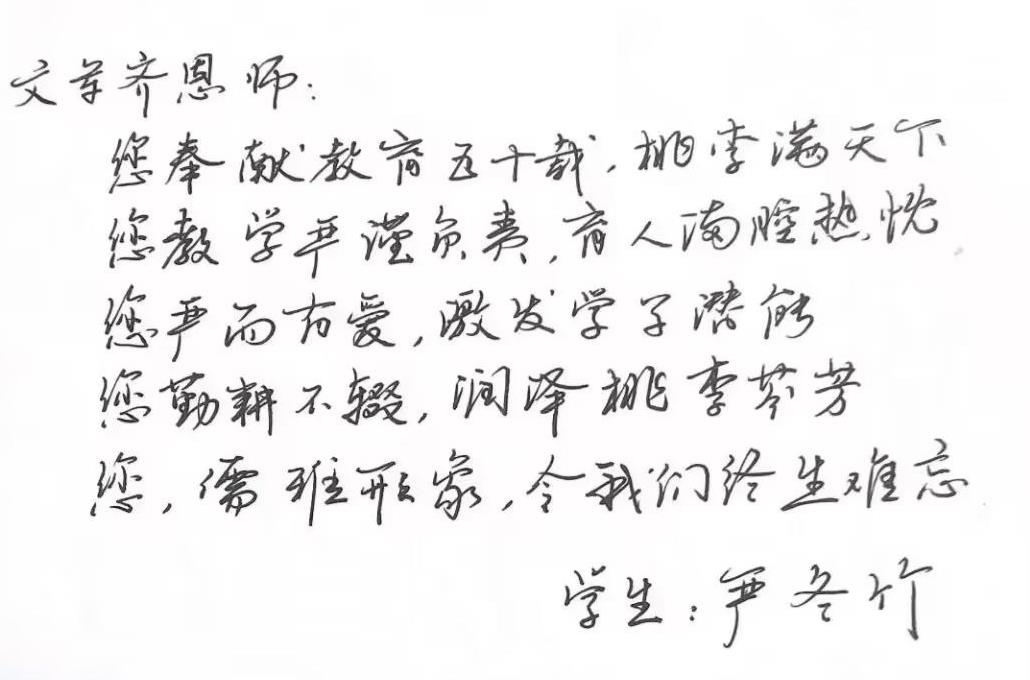 文军齐恩师:
您奉献教育五十载,桃李满天下
您教学严谨负责,育人满腔热忱
您严而有爱,激发学子潜能
您勤耕不辍,润泽桃李芬芳
您,儒雅形象,令我们终生难忘
学生:严冬竹